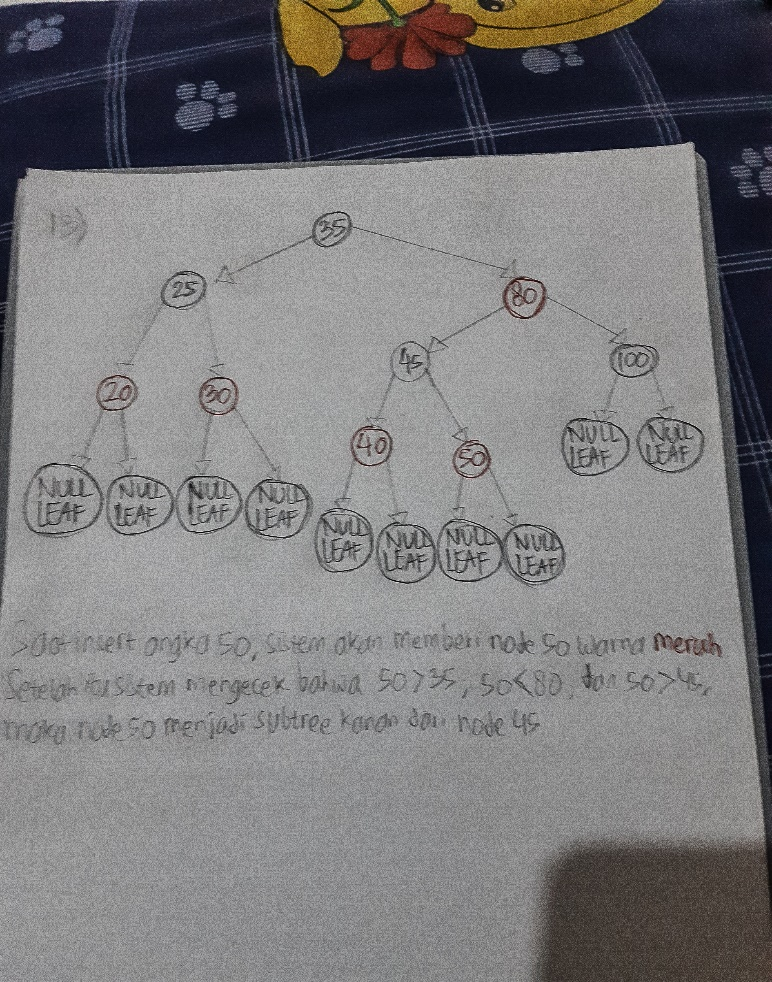 13)
35
25
80
45
100
20
30
40
50
NULL LEAF
NULL LEAF
NULL LEAF
NULL LEAF
NULL LEAF
NULL LEAF
NULL LEAF
NULL LEAF
NULL LEAF
NULL LEAF
Saat insert angka 50, sistem akan memberi node 50 warna merah
Setelah itu sistem mengecek bahwa 50>35, 50<80, dan 50>45,
maka node 50 menjadi subtree kanan dari node 45